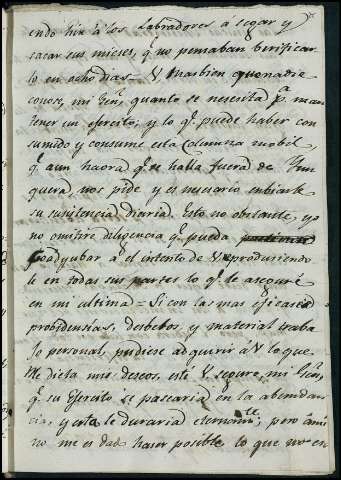 endo hir á los Labradores á segar y
sacar sus mieses, q.e no pensaban berificar
lo en ocho dias = V mas bien que nadie
conose, mi Gen.l quanto se nesecita p.a man
tener un efercito; y lo q.e puede haber con
sumido y consume esta Columna mobil
q.e aun haora q.e se halla fuera de Yun
quera, nos pide y es nesesario enbiarle
su susistencia diaria. Esto no obstante, yo
no omitire diligencia q.e pueda
Coadyubar á el intento de V reproduciendo
le en todas sus partes lo q.e le aseguré
en mi ultima = Si con las mas eficases
probidensias, desbelos, y material traba
jo personal, pudiese adquirir á V lo que
Me dicta mis deseos, esté V seguro mi Gen.l
q.e su Efercito se pasearia en la abundan
cia, y esta le duraria eternam.te; pero á mi
no me es dado haser posible lo que no en